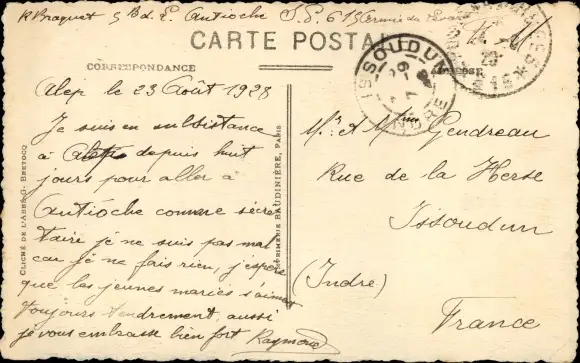 R Braquet 5 Bd. E. Antioche S.P. 615 Armée du Levant
F. M.
CARTE POSTALE
CORRESPONDANCE
ISSOUDUN
INDRE
Alep le 23 Août 1928
Je suis en subsistance
à Alep depuis huit
jours pour aller à
Antioche comme sécré
taire je ne suis pas mal
car je ne fais rien, j'espère
que les jeunes mariés s'aiment
toujours tendrement, aussi
je vous embrasse bien fort Raymond
CLICHÉ DE L'ABBÉ G. BRETOCQ
IMPRIMERIE BAUDINIÈRE, PARIS
Mr. et Mme Gendreau
Rue de la Herse
Issoudun
(Indre)
France